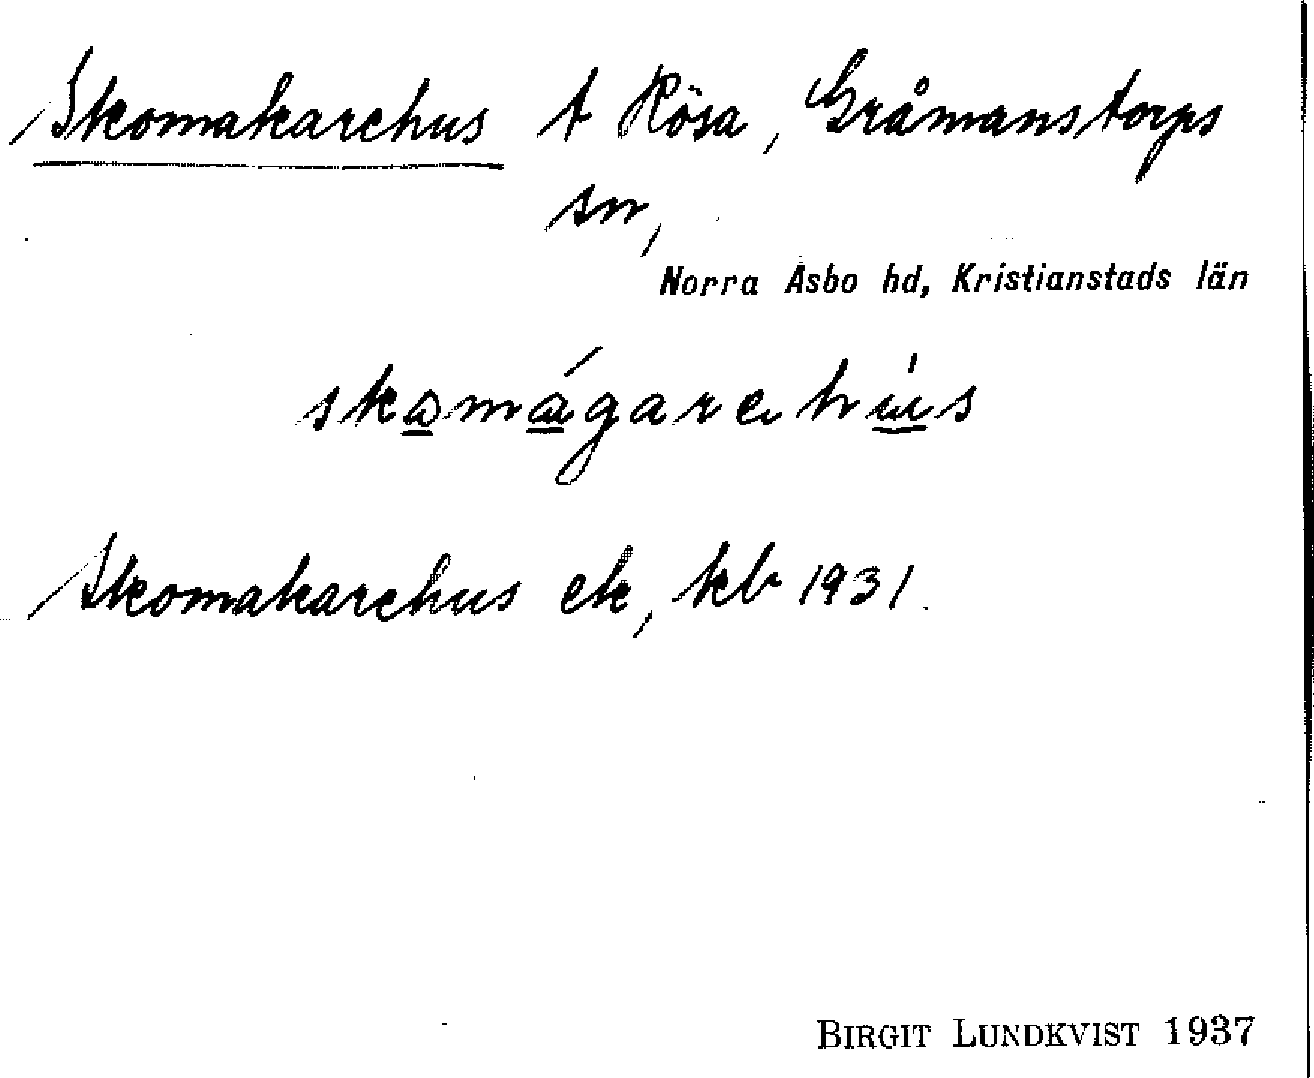 Skomakarehus t Rösa, Gråmanstorps
sn,
Norra Åsbo hd, Kristianstads län
skomágarehús
Skomakarehus ek, kb 1931.
BIRGIT LUNDKVIST 1937